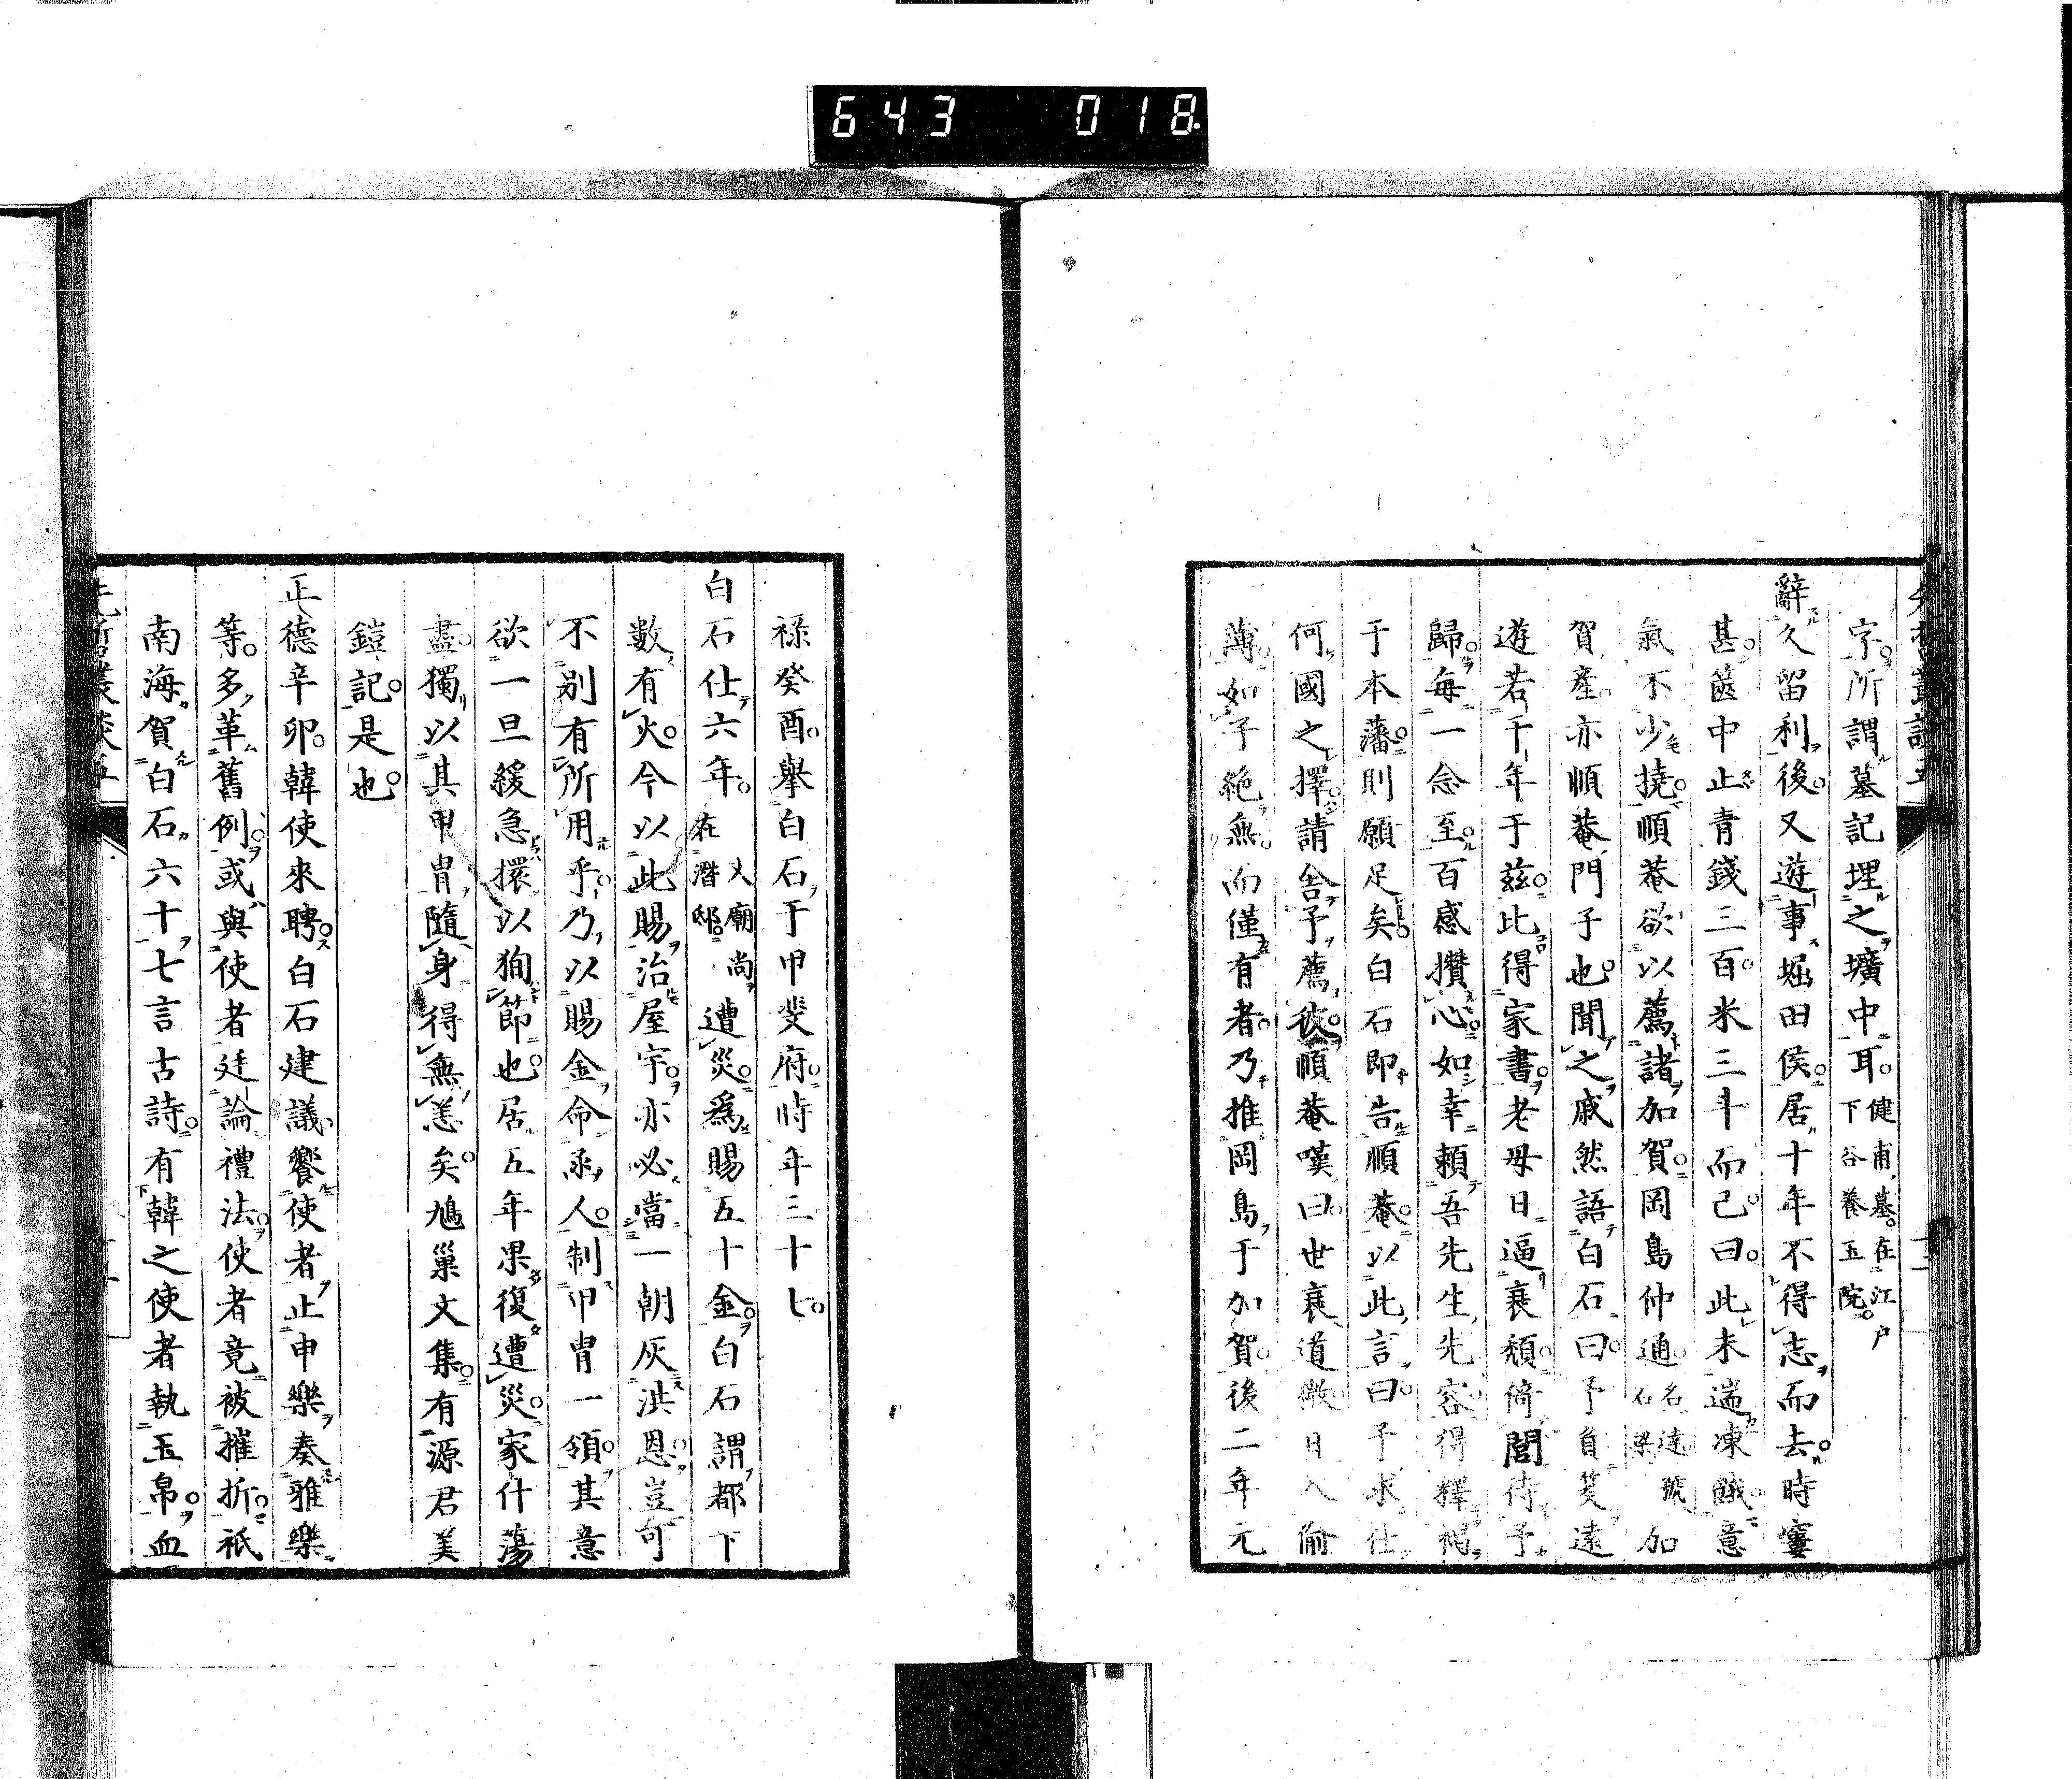 643 018
先哲叢談五
字所謂墓記埋之壙中耳健甫墓在江戶下谷養玉院
辭久留利後又遊事堀田侯居十年不得志而去時窶
甚篋中止青錢三百米三斗而已曰此未遄凍餓意
氣不少撓順菴欲以薦諸加賀岡島仲通名達號石梁加
賀產亦順菴門子也聞之戚然語白石曰予負笈遠
遊若干年于茲此得家書老母日逼衰頽倚閭待予
歸每一念至百感攢心如幸賴吾先生先容得釋褐
于本藩則願足矣白石即告順菴以此言曰予求仕
何國之擇請舍予薦彼順菴嘆曰世衰道微日入偷
薄如子絶無而僅有者乃推岡島于加賀後二年元
祿癸酉舉白石于甲斐府時年三十七
白石仕六年在文廟尚潛邸遭災爲賜五十金白石謂都下
数有火今以此賜治屋宇亦必當一朝灰洪恩豈可
不別有所用乎乃以賜金命函人制甲胄一領其意
欲一旦緩急擐以狥節也居五年果復遭災家什蕩
盡獨以其甲胄隨身得無恙矣鳩巢文集有源君美
鎧記是也
正德辛卯韓使來聘白石建議饗使者止申樂奏雅樂
等多革舊例或與使者廷論禮法使者竟被摧折祇
南海賀白石六十七言古詩有韓之使者執玉帛血
先哲叢談五